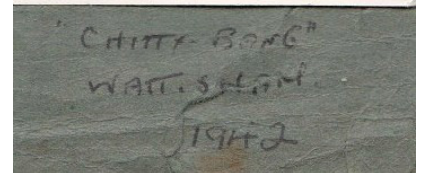 "CHITTY-BANG"
WATTISHAM.
1942